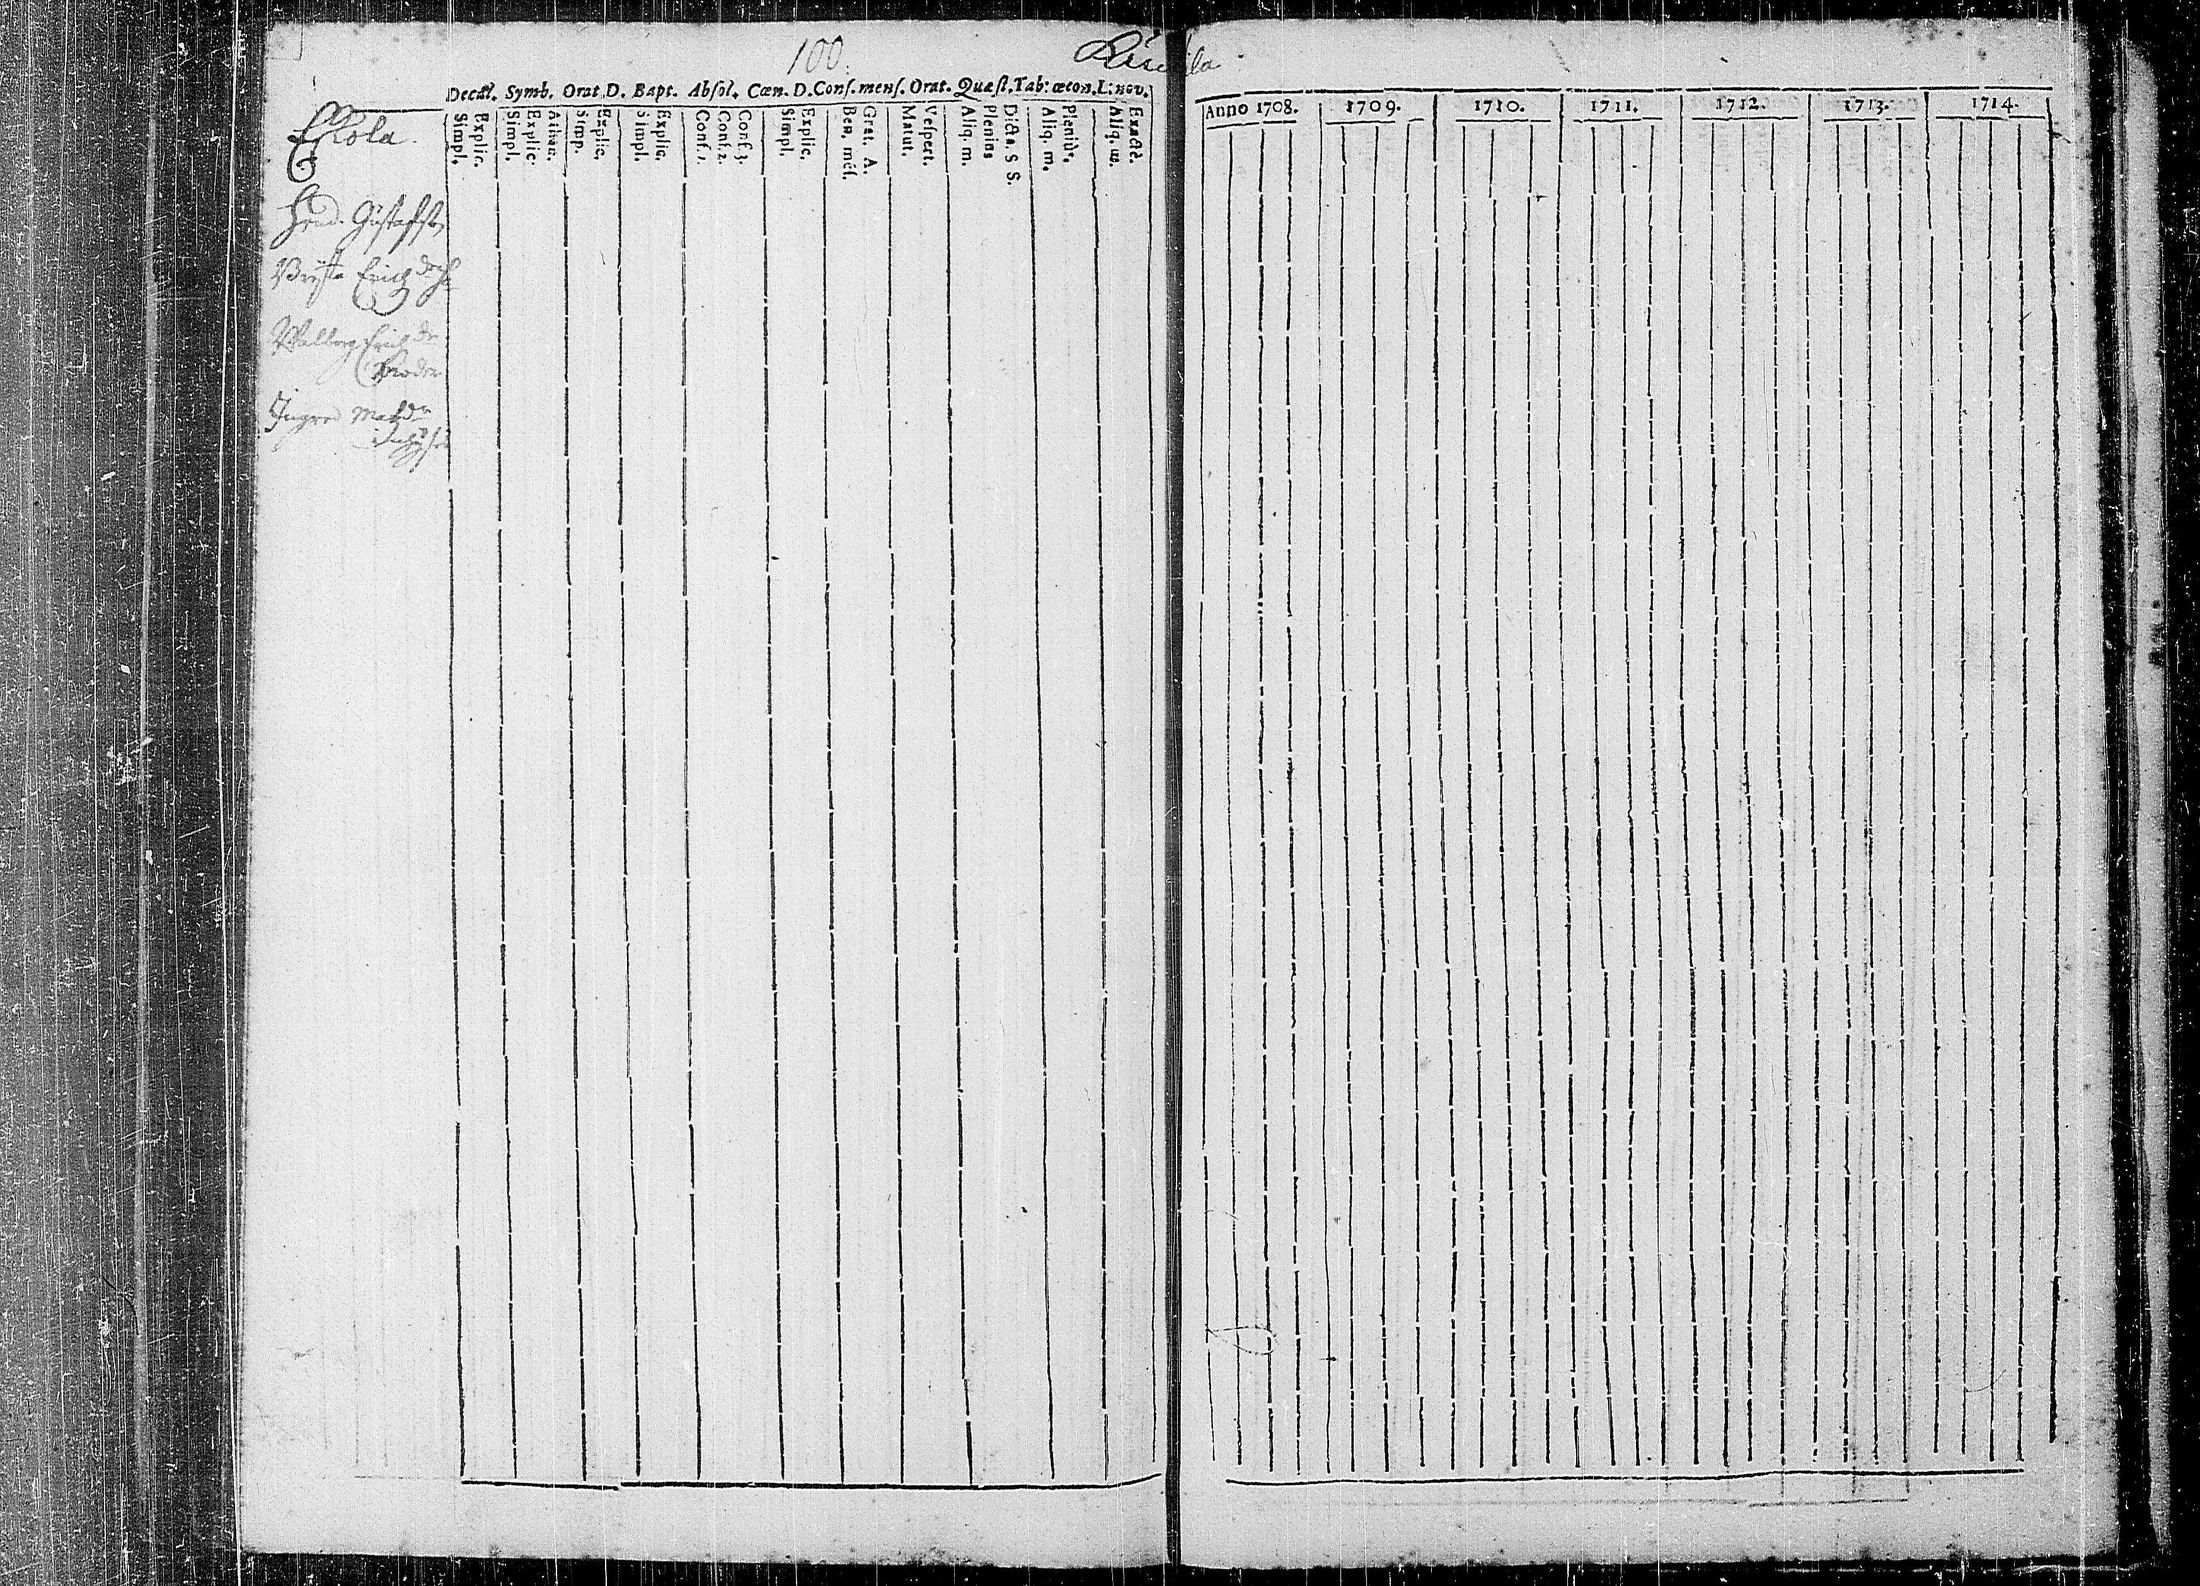 100.
Decal. Symb. Orat. D. Bapt. Absol. Cœn. D. Conſ. menſ. Orat. Quæſt. Tab: œcon. L: nov.
Explic.
Simpl.
Athan.
Explic.
Simpl.
Explic.
Simp.
Explic.
Simpl.
Conf. 3.
Conf. 2.
Conf. 1.
Explic.
Simpl.
Grat. A.
Ben. mēſ.
Veſpert.
Matut.
Dicta. S S.
Plenius
Aliq. m.
Pleniùs.
Aliq. m.
Exactè.
Aliq. m.
Hend. Gustafss
Brijta Erichs
Walborg Erichs dr
Ingre Mats dr
Anno 1708. 1709. 1710. 1711. 1712. 1713. 1714.